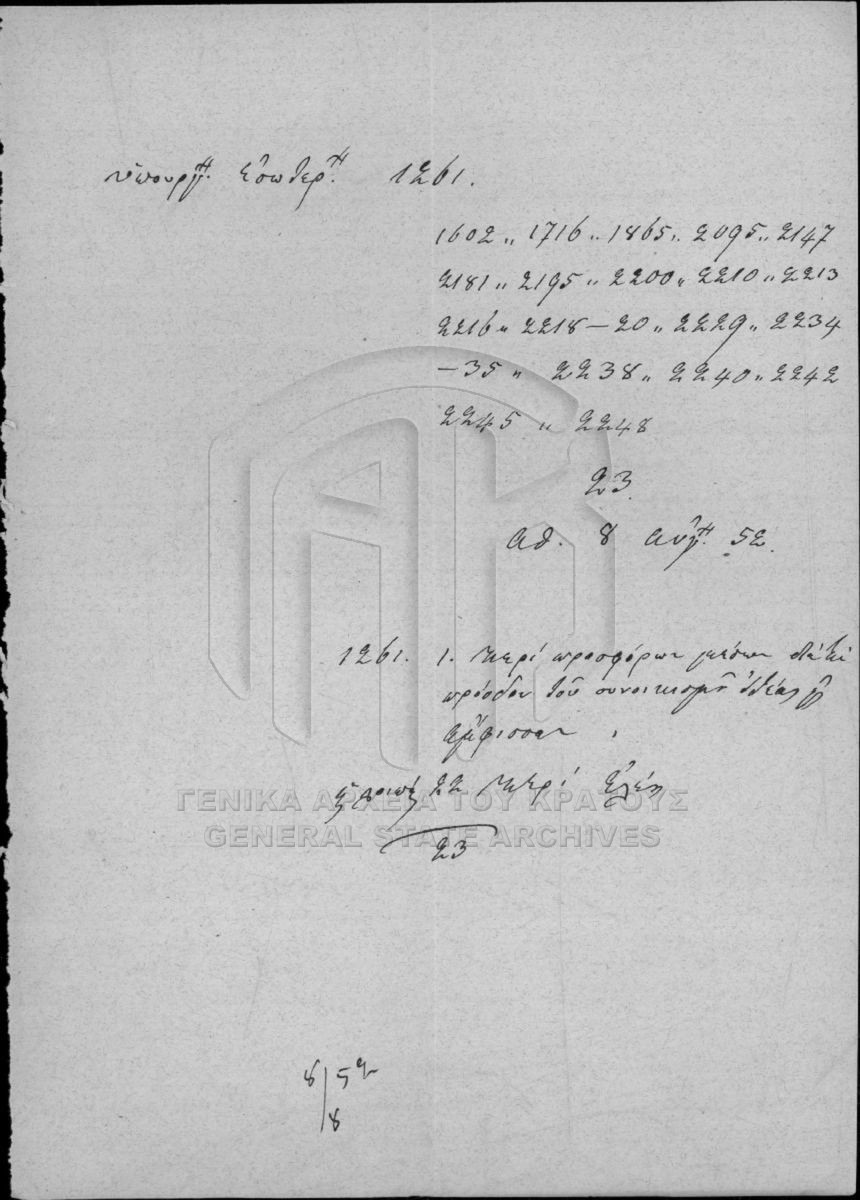 ὑπουργ. Ἐσωτερ. 1261.
1602 „ 1716 „ 1865 „ 2095 „ 2147
2181 „ 2195 „ 2200 „ 2210 „ 2213
2216 „ 2218 – 20 „ 2229 „ 2234
– 35 „ 2238 „ 2240 „ 2242
2245 „ 2248
23
Αθ. 8 Αὐγ. 52.
1261. 1. Περί προσφόρων μέσων
πρόοδον τοῦ συνοικισμοῦ Ἰτέας
Ἄμφισσαν
22 Περί
23
ΓΕΝΙΚΑ ΑΡΧΕΙΑ ΤΟΥ ΚΡΑΤΟΥΣ
GENERAL STATE ARCHIVES
8/8 52